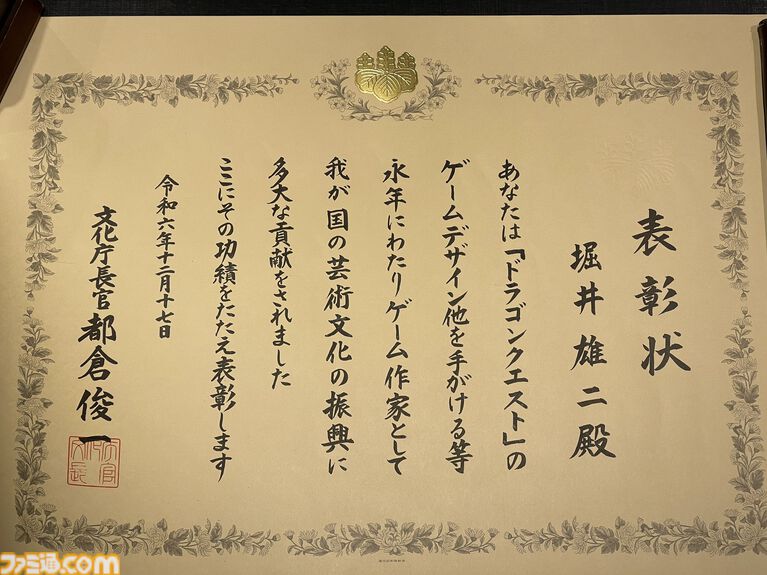 表彰状
堀井雄二殿
あなたは「ドラゴンクエスト」の
ゲームデザイン他を手がける等
永年にわたりゲーム作家として
我が国の芸術文化の振興に
多大な貢献をされました
ここにその功績をたたえ表彰します
令和六年十二月十七日
文化庁長官 都倉俊一
ファミ通.com